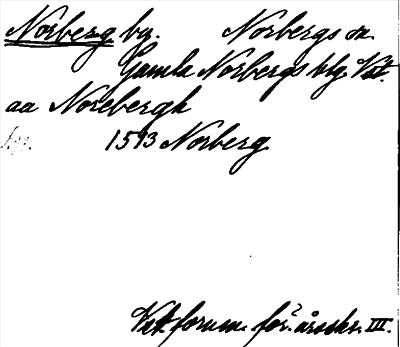 Norberg by. Norbergs sn.
Gamla Norbergs blg. Vst.
aa Norebergh
1593 Norberg
Vst. fornm. för:s årsskr. III.